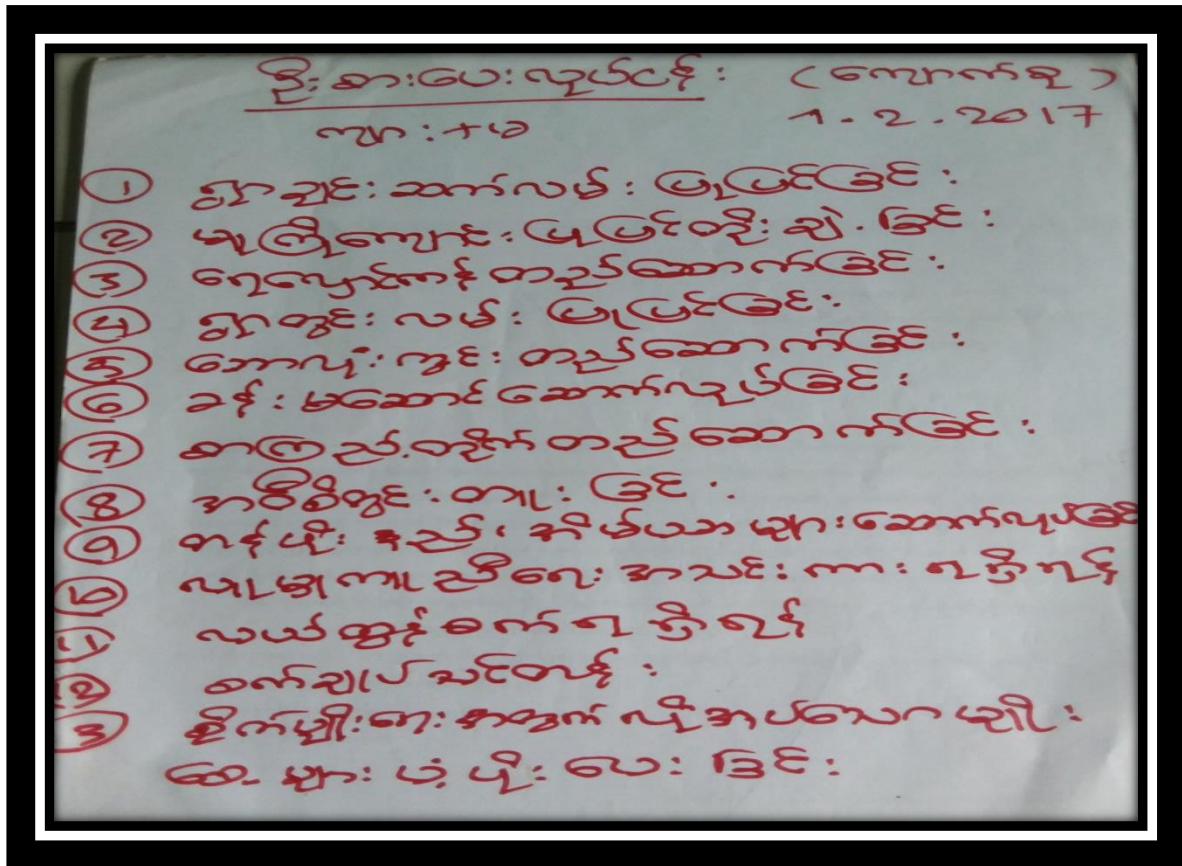 ဦးစားပေးလုပ်ငန်း (ကျောက်စု)
ကျား+မ 1.2.2017
① ရွာချင်းဆက်လမ်းပြုပြင်ခြင်း
② မူကြိုကျောင်းပြုပြင်တိုးချဲ့ခြင်း
③ ရေလှောင်ကန်တည်ဆောက်ခြင်း
④ ရွာတွင်းလမ်းပြုပြင်ခြင်း
⑤ ဘောလုံးကွင်းတည်ဆောက်ခြင်း
⑥ ခန်းမဆောင်ဆောက်လုပ်ခြင်း
⑦ စာကြည့်တိုက်တည်ဆောက်ခြင်း
⑧ အဝီစိတွင်းတူးခြင်း
⑨ တန်ဖိုးနည်းအိမ်ယာများဆောက်လုပ်ခြင်
⑩ လူမှုကူညီရေးအသင်းကားရရှိရန်
⑪ လယ်ထွန်စက်ရရှိရန်
⑫ စက်ချုပ်သင်တန်း
⑬ စိုက်ပျိုးရေးအတွက်လိုအပ်သောမျိုး
ဆေးများပံ့ပိုးပေးခြင်း